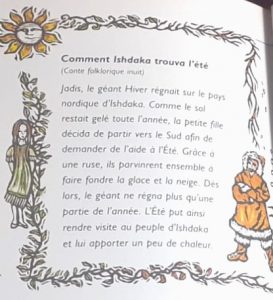 Comment Ishdaka trouva l'été
(Conte folklorique inuit)
Jadis, le géant Hiver régnait sur le pays
nordique d'Ishdaka. Comme le sol
restait gelé toute l'année, la petite fille
décida de partir vers le Sud afin de
demander de l'aide à l'Été. Grâce à
une ruse, ils parvinrent ensemble à
faire fondre la glace et la neige. Dès
lors, le géant ne régna plus qu'une
partie de l'année. L'Été put ainsi
rendre visite au peuple d'Ishdaka
et lui apporter un peu de chaleur.